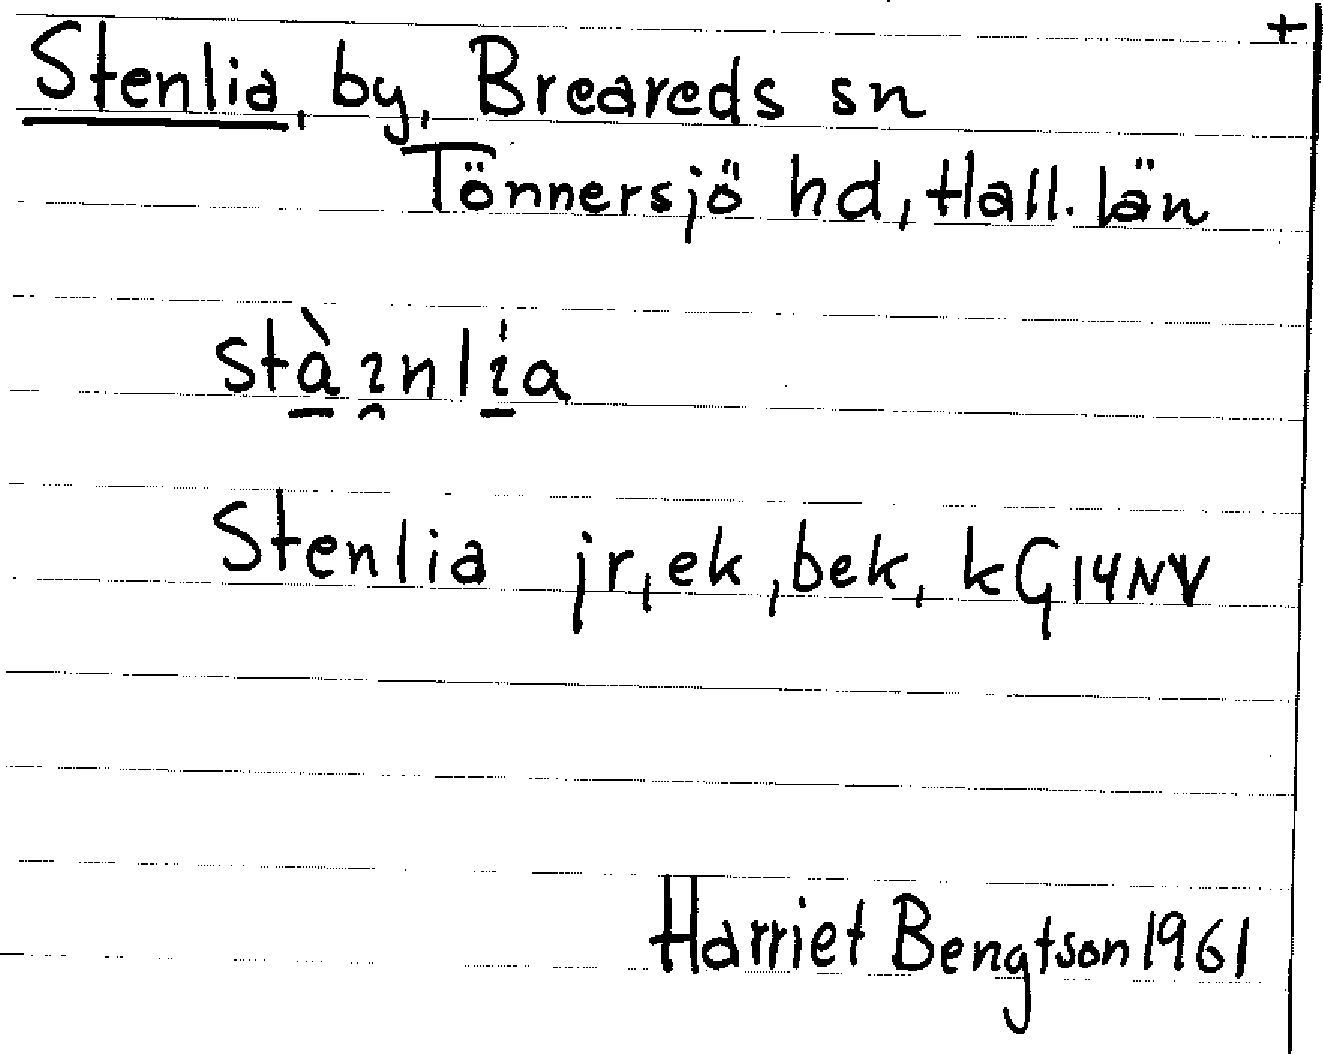 +
Stenlia, by, Breareds sn
Tönnersjö hd, Hall. län
stàɪnlia
Stenlia jr, ek, bek, kG14NV
Harriet Bengtson 1961